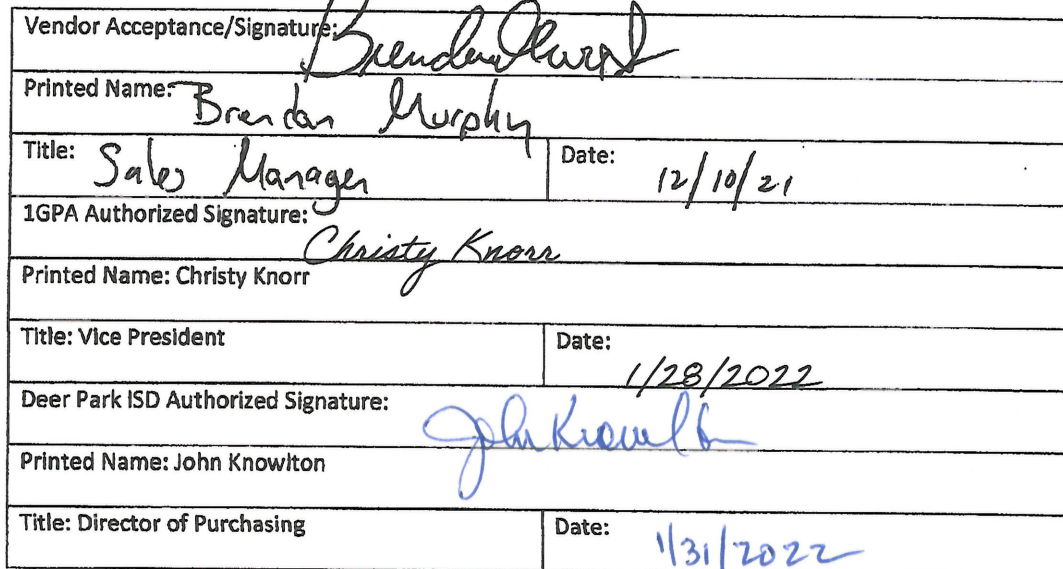 Vendor Acceptance/Signature: Brendan Murph
Printed Name: Brendan Murphy
Title: Sales Manager Date: 12/10/21
1GPA Authorized Signature: Christy Knorr
Printed Name: Christy Knorr
Title: Vice President Date: 1/28/2022
Deer Park ISD Authorized Signature: John Knowlton
Printed Name: John Knowlton
Title: Director of Purchasing Date: 1/31/2022